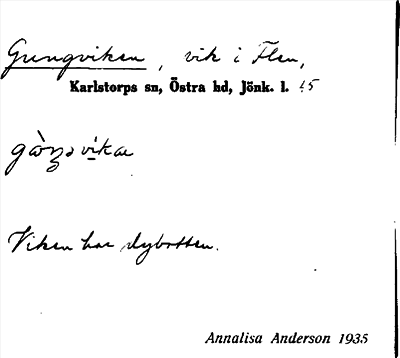 Gungviken, vik i Flen,
Karlstorps sn, Östra hd, Jönk. l. 15
Viken har dybotten.
Annalisa Anderson 1935